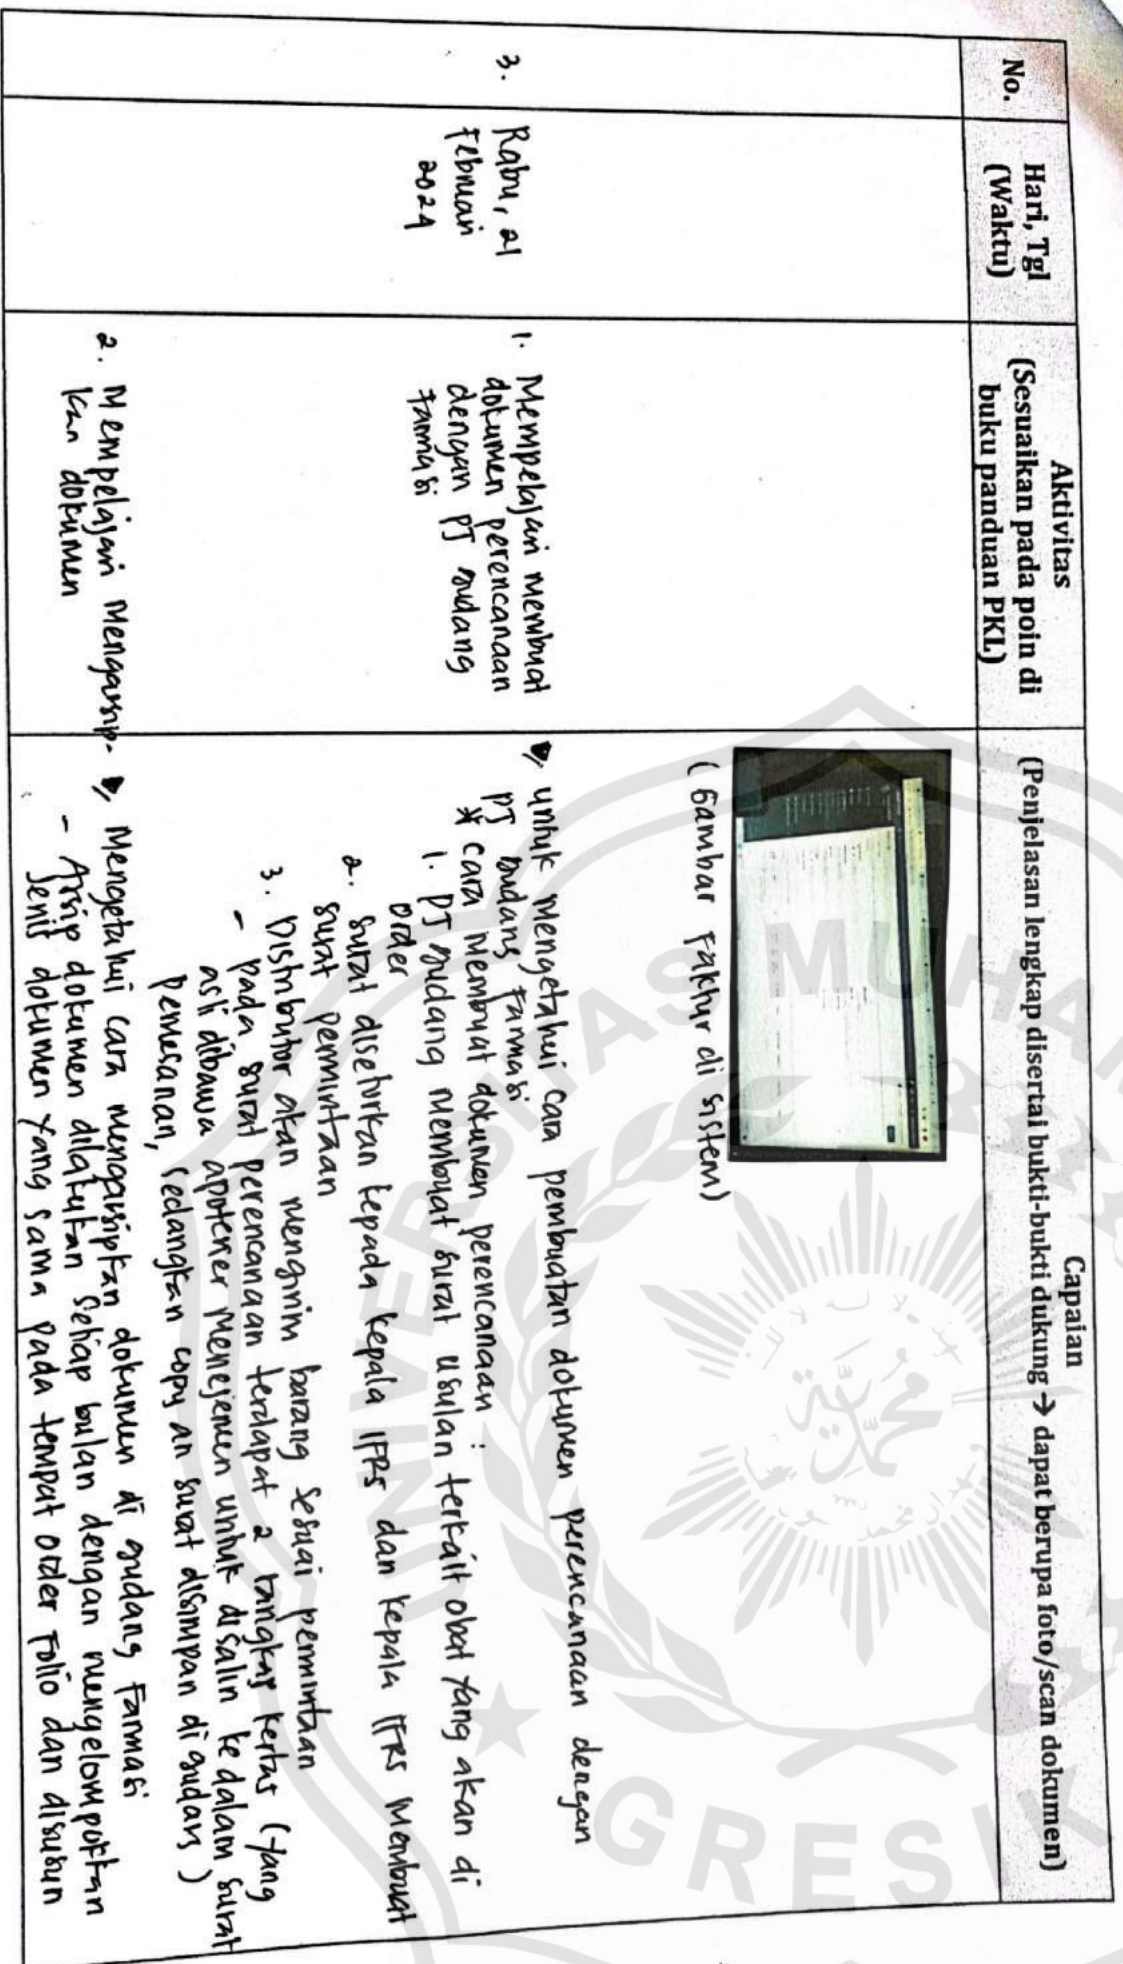 No.
Hari, Tgl
(Waktu)
Aktivitas
(Sesuaikan pada poin di
buku panduan PKL)
Capaian
(Penjelasan lengkap disertai bukti-bukti dukung → dapat berupa foto/scan dokumen)
(Gambar Faktur di sistem)
3.
Rabu, 21
Februari
2024
1. Mempelajari membuat
dokumen perencanaan
dengan PJ Gudang
Farmasi
untuk mengetahui cara pembuatan dokumen perencanaan dengan
PJ Gudang Farmasi
* cara membuat dokumen perencanaan :
1. PJ Gudang membuat surat usulan terkait obat yang akan di
order
2. surat disetorkan kepada kepala IFRS dan kepala IFRS membuat
surat permintaan
3. Distributor akan mengirim barang sesuai permintaan
- pada surat perencanaan terdapat 2 rangkap kertas (yang
asli dibawa apoteker menejemen untuk disalin ke dalam surat
pemesanan, sedangkan copy an surat disimpan di gudang)
2. Mempelajari mengarsip-
kan dokumen
Mengetahui cara mengarsipkan dokumen di gudang Farmasi
- Arsip dokumen dilakukan setiap bulan dengan mengelompokkan
Jenis dokumen yang sama pada tempat order Folio dan disusun
UNIVERSITAS MUHAM
GRESIK